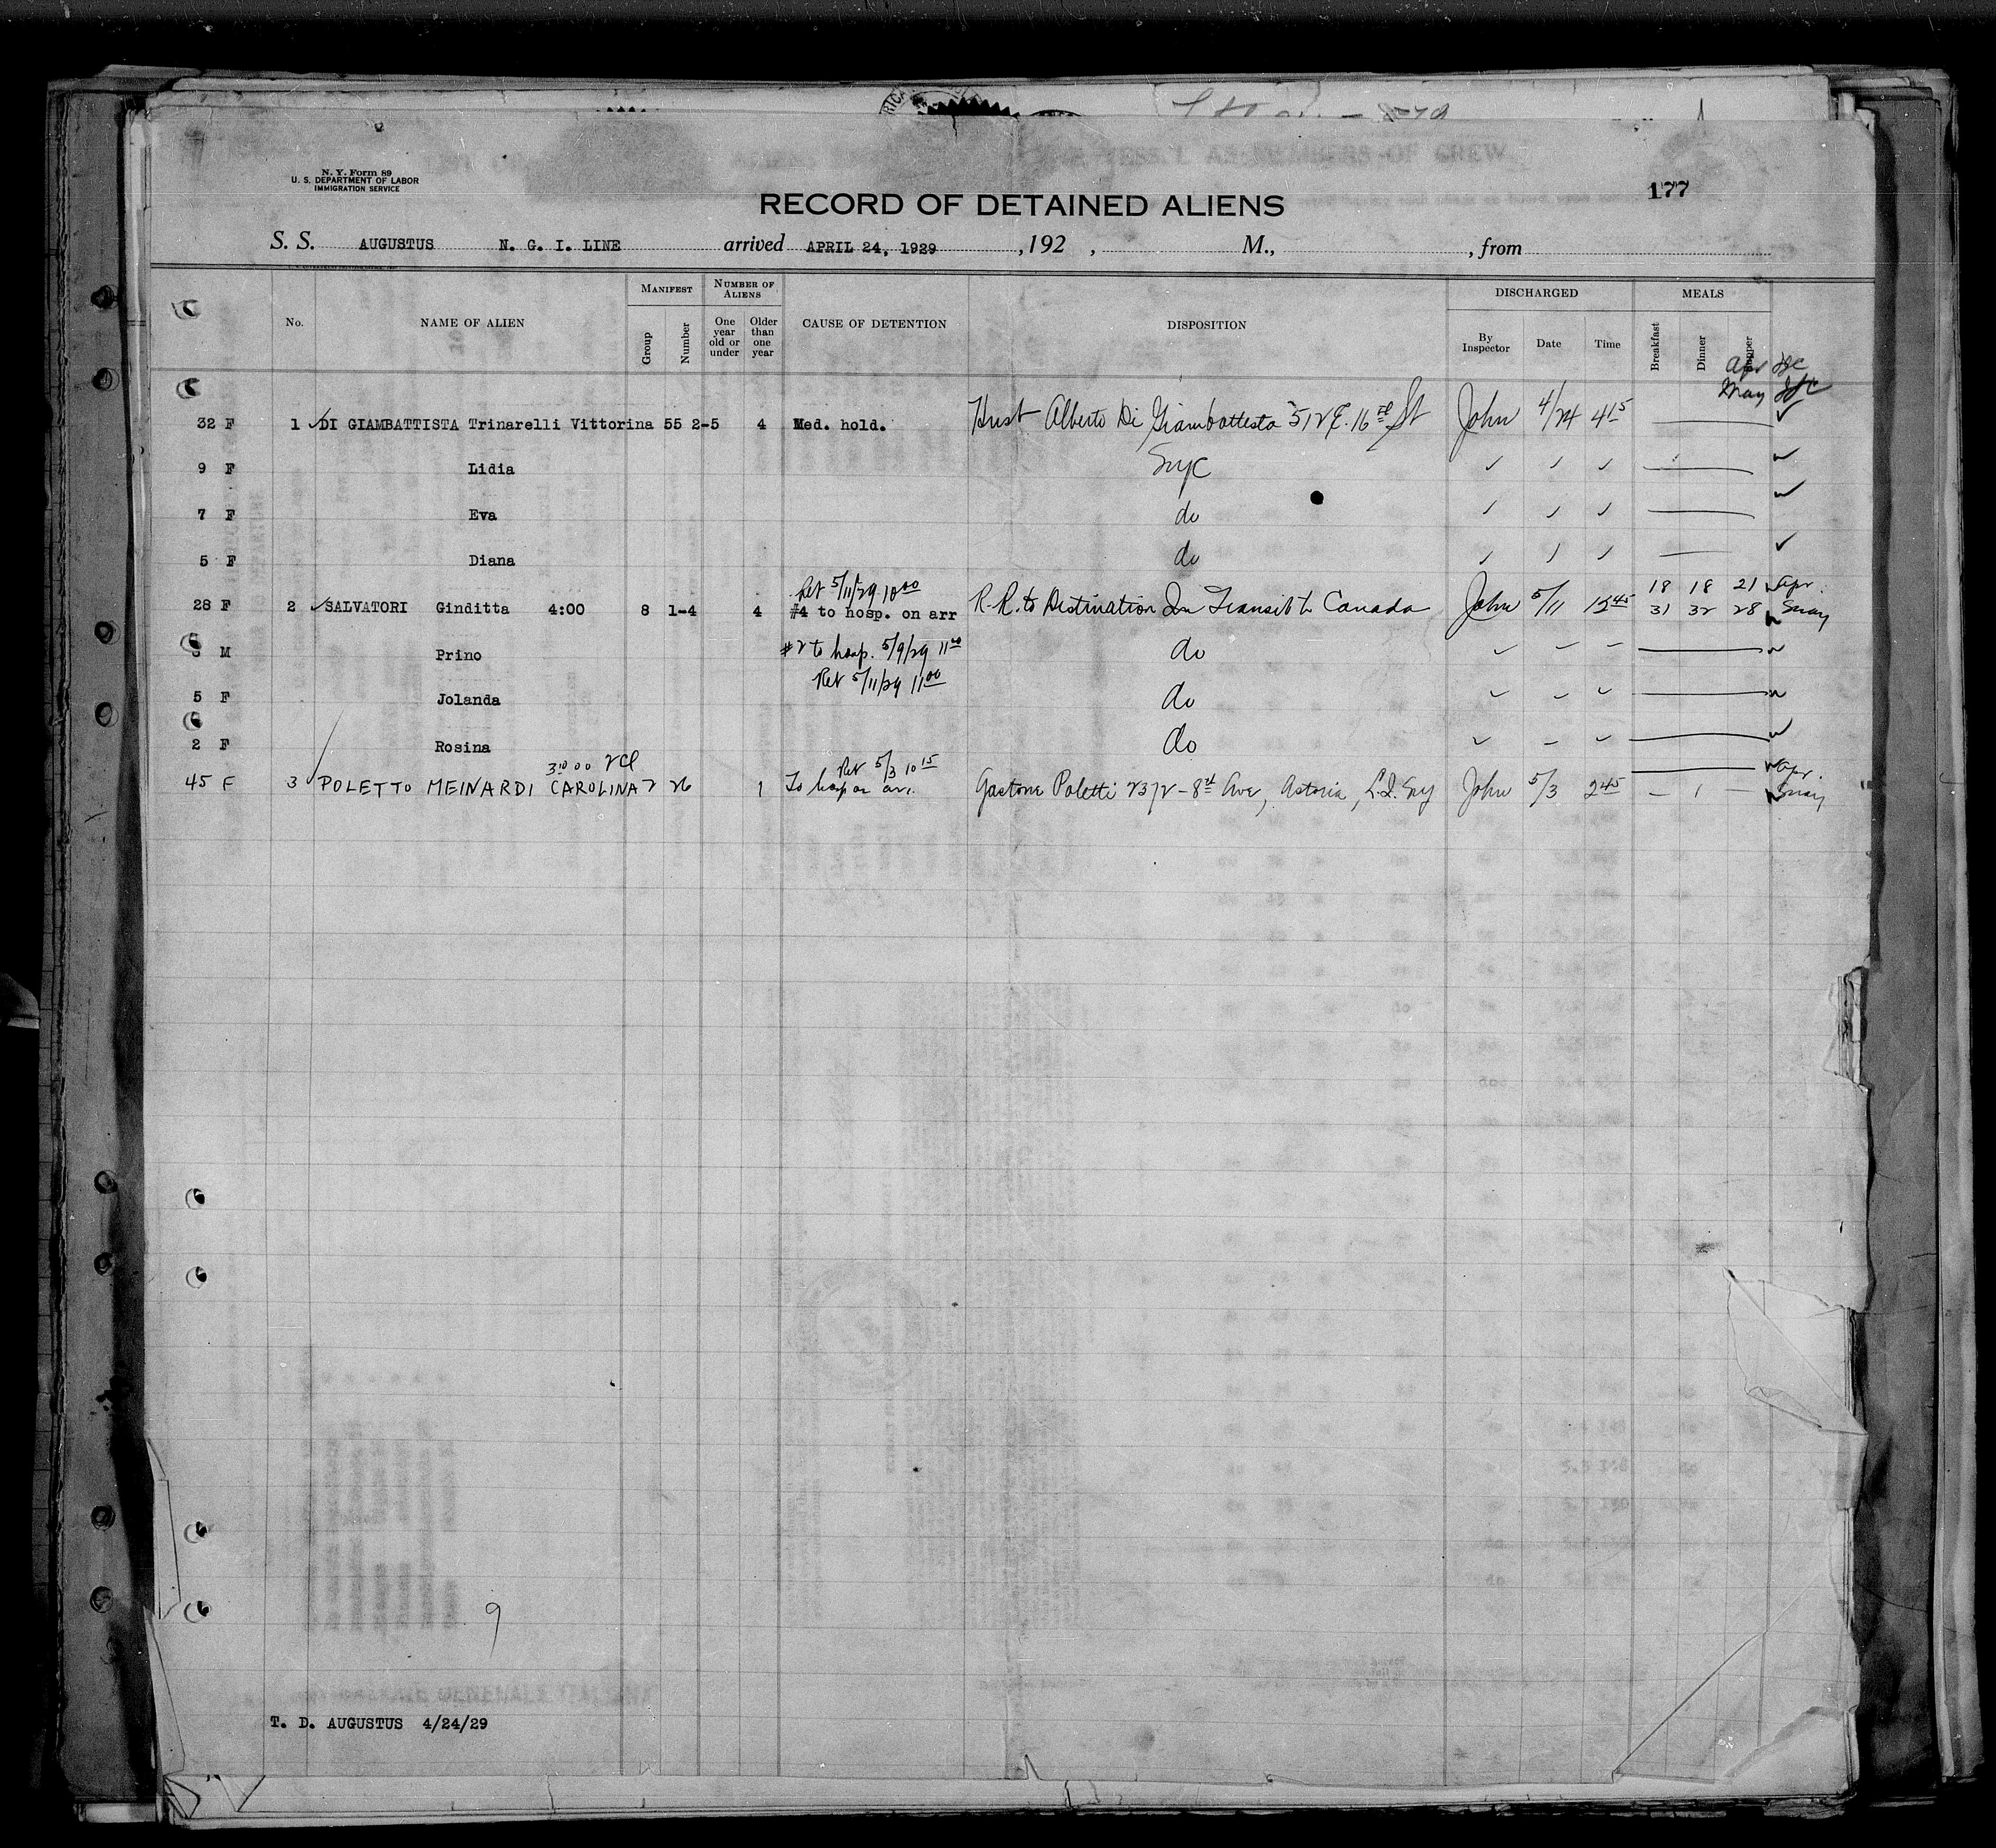 N. Y. Form 89
U. S. DEPARTMENT OF LABOR
IMMIGRATION SERVICE
177
RECORD OF DETAINED ALIENS
S. S. AUGUSTUS N. G. I. LINE arrived APRIL 24, 1929 , 192 , M., , from
MANIFEST NUMBER OF ALIENS DISCHARGED MEALS
No. NAME OF ALIEN Group Number One year old or under Older than one year CAUSE OF DETENTION DISPOSITION By Inspector Date Time Breakfast Dinner Supper
Apr
May
32 F 1 ✓ DI GIAMBATTISTA Trinarelli Vittorina 55 2-5 4 Med. hold. Hust Alberto Di Giambattesta 512 E. 16 St John 4/24 4 15 ✓
9 F Lidia NyC ✓ ✓ ✓ ✓
7 F Eva do ✓ ✓ ✓ ✓
5 F Diana do ✓ ✓ ✓ ✓
Ret 5/11/29 10 00 18 18 21 Apr.
28 F 2 ✓ SALVATORI Ginditta 4:00 8 1-4 4 #4 to hosp. on arr R.R. to Distination In Transit to Canada John 5/11 12 45 31 32 28 May
M Prino #2 to hosp. 5/9/29 11 00 do
Ret 5/11/29 11 00
5 F Jolanda do
2 F Rosina do
Ret 5/3 10 15 Apr.
45 F 3 POLETTO MEINARDI CAROLINA 2 26 1 To hosp on arr. Gastone Poletti 2372 - 8th Ave, Astoria, L.I. Ny John 5/3 2 45 - 1 - May
9
T. D. AUGUSTUS 4/24/29